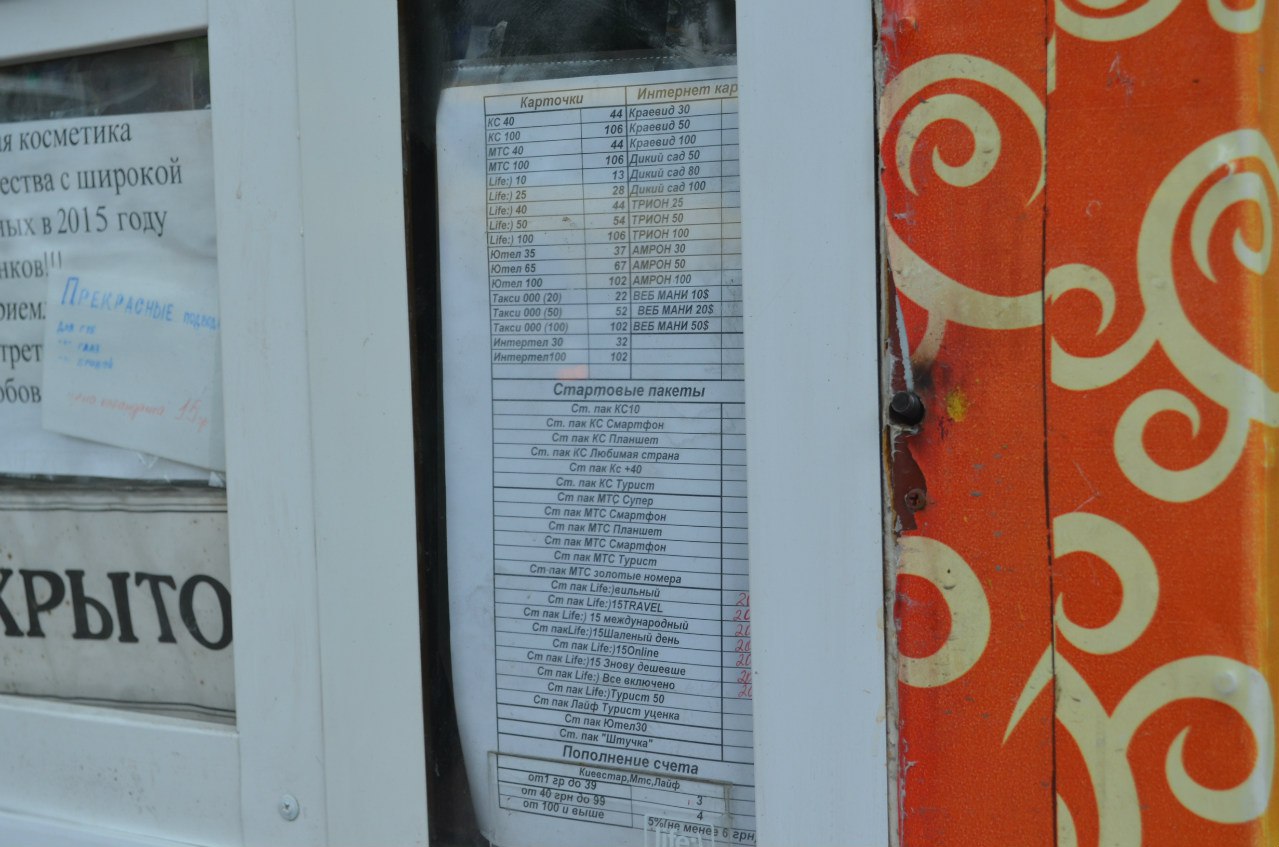 ая косметика
ества с широкой
ных в 2015 году
нков!!!
рием.
трет
обов
Прекрасные
для губ
глаз
15
КРЫТО
Карточки
КС 40 44
КС 100 106
МТС 40 44
МТС 100 106
Life:) 10 13
Life:) 25 28
Life:) 40 44
Life:) 50 54
Life:) 100 106
Ютел 35 37
Ютел 65 67
Ютел 100 102
Такси 000 (20) 22
Такси 000 (50) 52
Такси 000 (100) 102
Интертел 30 32
Интертел100 102
Интернет кар
Краевид 30
Краевид 50
Краевид 100
Дикий сад 50
Дикий сад 80
Дикий сад 100
ТРИОН 25
ТРИОН 50
ТРИОН 100
АМРОН 30
АМРОН 50
АМРОН 100
ВЕБ МАНИ 10$
ВЕБ МАНИ 20$
ВЕБ МАНИ 50$
Стартовые пакеты
Ст. пак КС10
Ст. пак КС Смартфон
Ст пак КС Планшет
Ст. пак КС Любимая страна
Ст пак Кс +40
Ст. пак КС Турист
Ст пак МТС Супер
Ст пак МТС Смартфон
Ст пак МТС Планшет
Ст пак МТС Смартфон
Ст пак МТС Турист
Ст пак МТС золотые номера
Ст пак Life:)вильный
Ст пак Life:)15TRAVEL 20
Ст пак Life:) 15 международный 20
Ст пакLife:)15Шаленый день 20
Ст пак Life:)15Online 20
Ст пак Life:)15 Знову дешевше 20
Ст пак Life:) Все включено 20
Ст пак Life:)Турист 50 20
Ст пак Лайф Турист уценка
Ст пак Ютел30
Ст. пак "Штучка"
Пополнение счета
Киевстар,Мтс,Лайф
от1 гр до 39 3
от 40 грн до 99 4
от 100 и выше 5%(не менее 6 грн
life:)